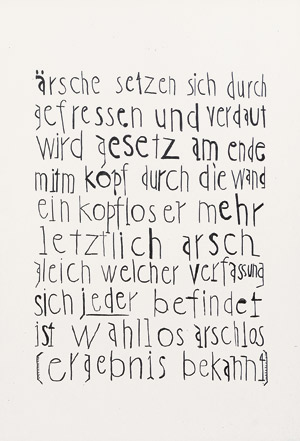 ärsche setzen sich durch
gefressen und verdaut
wird gesetz am ende
mitm kopf durch die wand
ein kopfloser mehr
letztlich arsch
gleich welcher verfassung
sich jeder befindet
ist wahllos arschlos
(ergebnis bekannt)